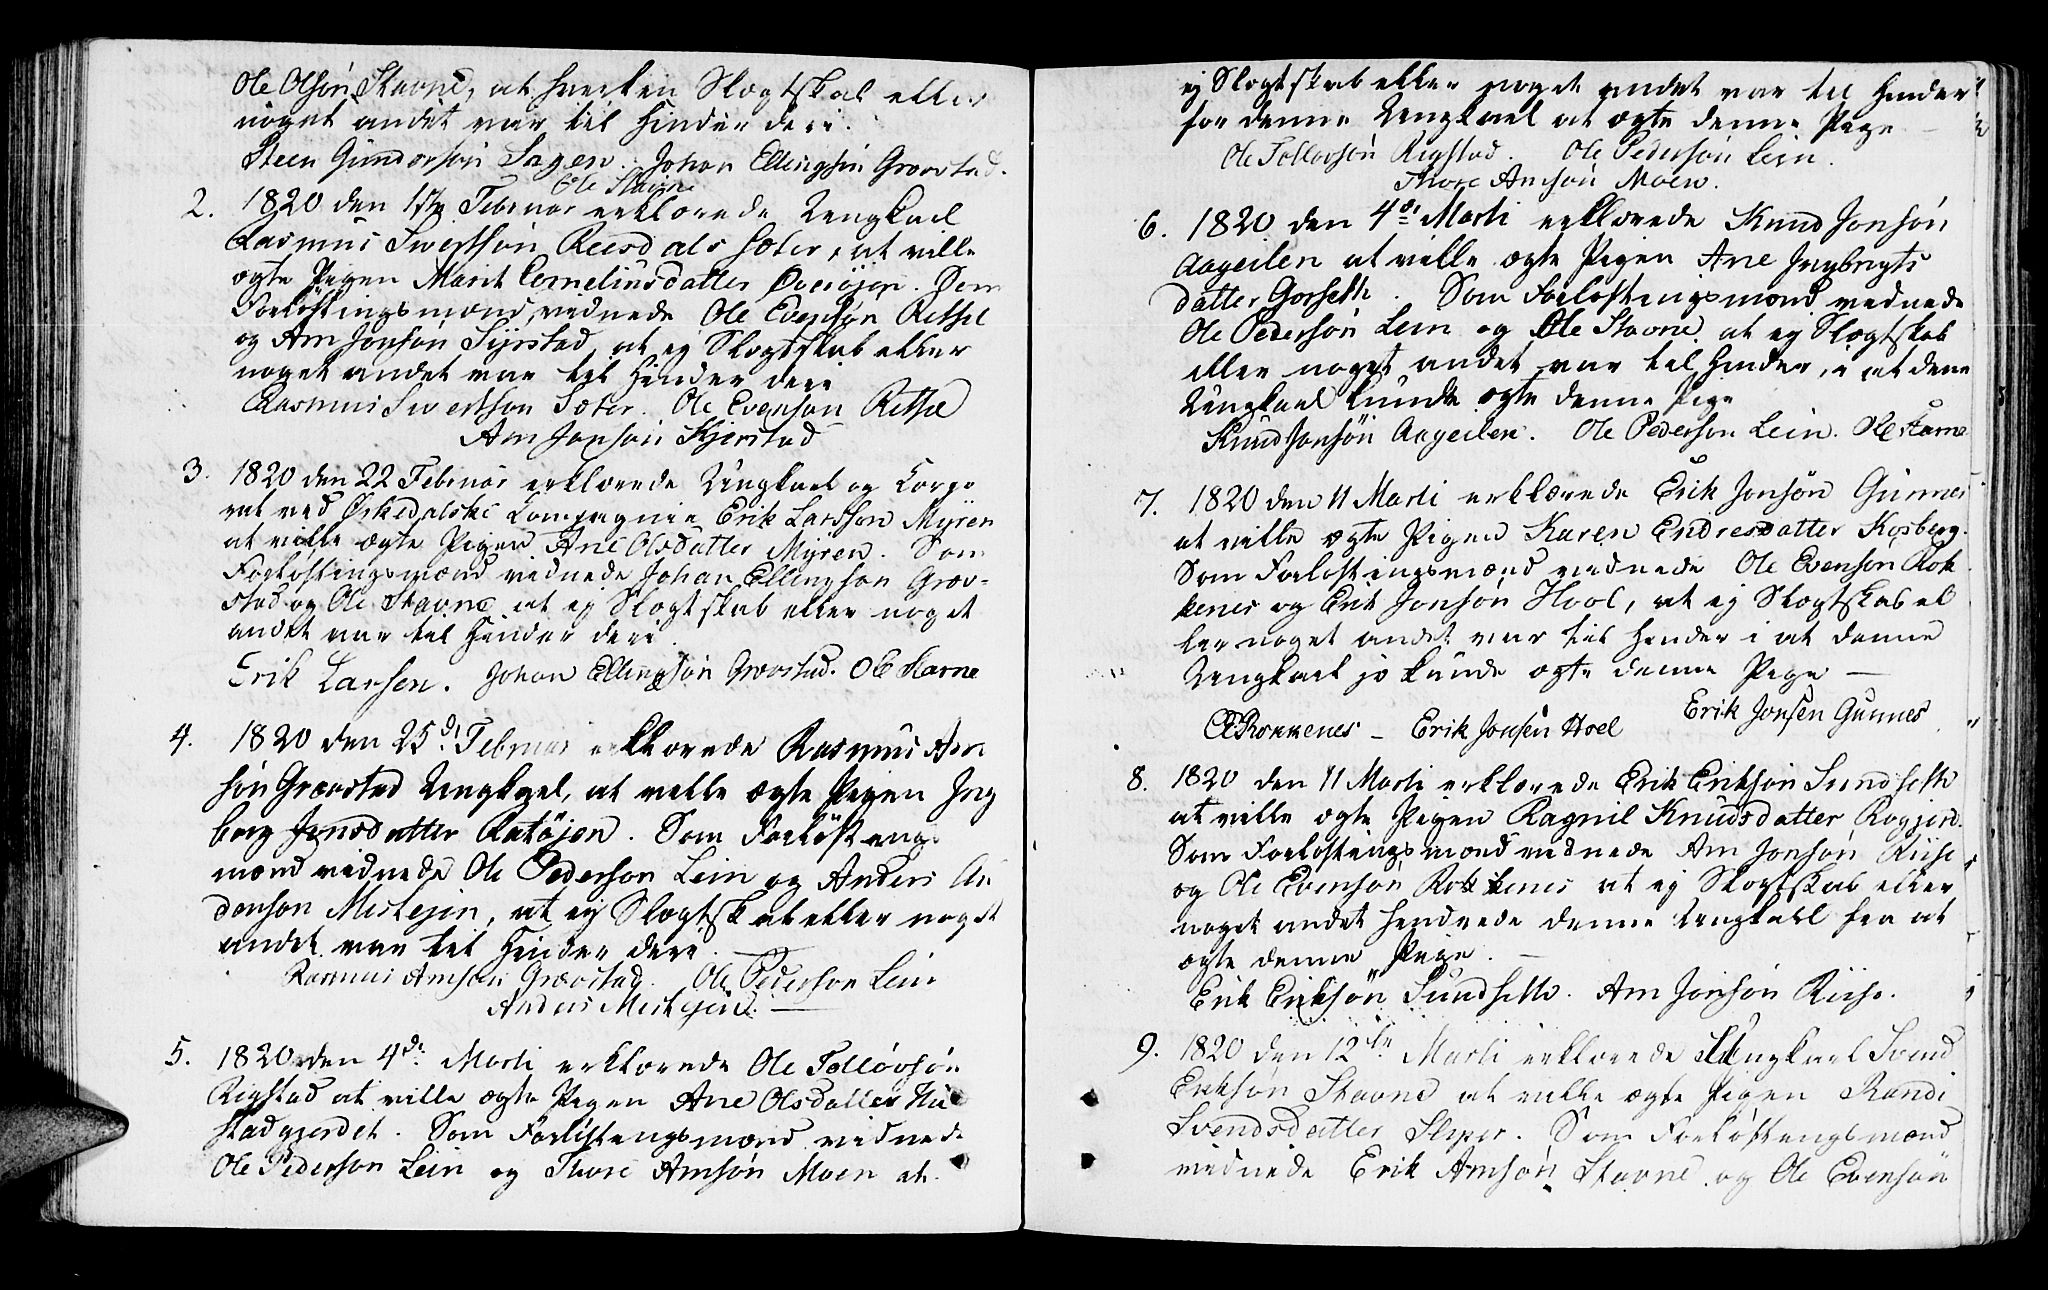 Ole Olsön Stavne, at hverken Slægtskab eller
noget andet var til Hinder deri.
Steen Gundersön Sagen. Johan Ellingsön Grovstad.
Ole Stavne
2. 1820 den Februar erklærede Ungkarl
Rasmus Sivertsön Reesdalssæter, at ville
ægte Pigen Marit Corneliusdatter Överöjen. Som
Forlöftningsmænd, vidnede Ole Evensön Rethe
og Arn Jonsön at ej Slægtskab eller
noget andet var til Hinder deri
Rasmus Sivertsön Sæter. Ole Evensön Rethe
Arn Jonsön Kjerstad
3. 1820 den 22 Februar erklærede Ungkarl og Corpo
ral ved Örkedalske Compagnie Erik Larsson Myren
at ville ægte Pigen Ane Olsdatter Myren. Som
Forlöftingsmænd vidnede Johan Ellingsön Græv-
stad og Ole Stavne at ej Slægtskab eller noget
andet var til Hinder deri
Erik Larsen. Johan Ellingsön Grovstad. Ole Starne
4. 1820 den 25de Februar erklærede Rasmus Arn
sön Grævstad Ungkarl, at ville ægte Pigen Ing
borg Jonsdatter Ratöjen. Som Forlöftning
mænd vidnede Ole Pedersön Lein og Anders An
dersön Mestejen, at ej Slægtskab eller noget
andet var til Hinder deri.
Rasmus Arnsön Grævstad. Ole Pedersön Lein
Anders Mestejen.
5. 1820 den 4de Marti erklærede Ole Tollövsön
Rigstad at ville ægte Pigen Ane Olsdatter
stadgjerdet. Som Forlöftningsmænd vidnede
Ole Pedersön Lein og Thore Arnsön Moen at
ej Slægtskab eller noget andet var til Hinder
for denne Ungkarl at ægte denne Pige
Ole Tollovsön Rigstad. Ole Pedersön Lein.
Thore Arnsön Moen.
6. 1820 den 4de Marti erklærede Knud Jonsön
Aageilen at ville ægte Pigen Ane Ingbrigts
datter Gorseth. Som Forlöftningsmænd vidnede
Ole Pedersön Lein og Ole Stavne at ej Slægtskab
eller noget andet var til Hinder, i at denne
Ungkarl kunde ægte denne Pige
Knud Jonsön Aageilen. Ole Pederson Lein. Ole Starne
7. 1820 den 11 Marti erklærede Erik Jonsön Gunnes
at ville ægte Pigen Karen Endresdatter Kosberg.
Som Forlöftingsmænd vidnede Ole Evensön Rok
kenes og Erik Jonsön Hool, at ej Slægtskab el
ler noget andet var til Hinder i at denne
Ungkarl jo kunde ægte denne Pige —
Rokkenes – Erik Jonsen Hoel Erik Jonsen Gunnes
8. 1820 den 11 Marti erklærede Erik Eriksön Sundseth
at ville ægte Pigen Ragnil Knudsdatter Rogjerd.
Som Forlöftingsmænd vidnede Arn Jonsön Riise
og Ole Evensön Rokkenes at ej Slægtskab eller
noget andet hindrede denne Ungkarl fra at
ægte denne Pige. —
Erik Eriksön Sundseth. Arn Jonsön Riise.
9. 1820 den 12te Marti erklærede Ungkarl Svend
Eriksön Stavne at ville ægte Pigen Randi
Svendsdatter Som Forlöftningsmænd
vidnede Erik Arnsön Stavne og Ole Evensön